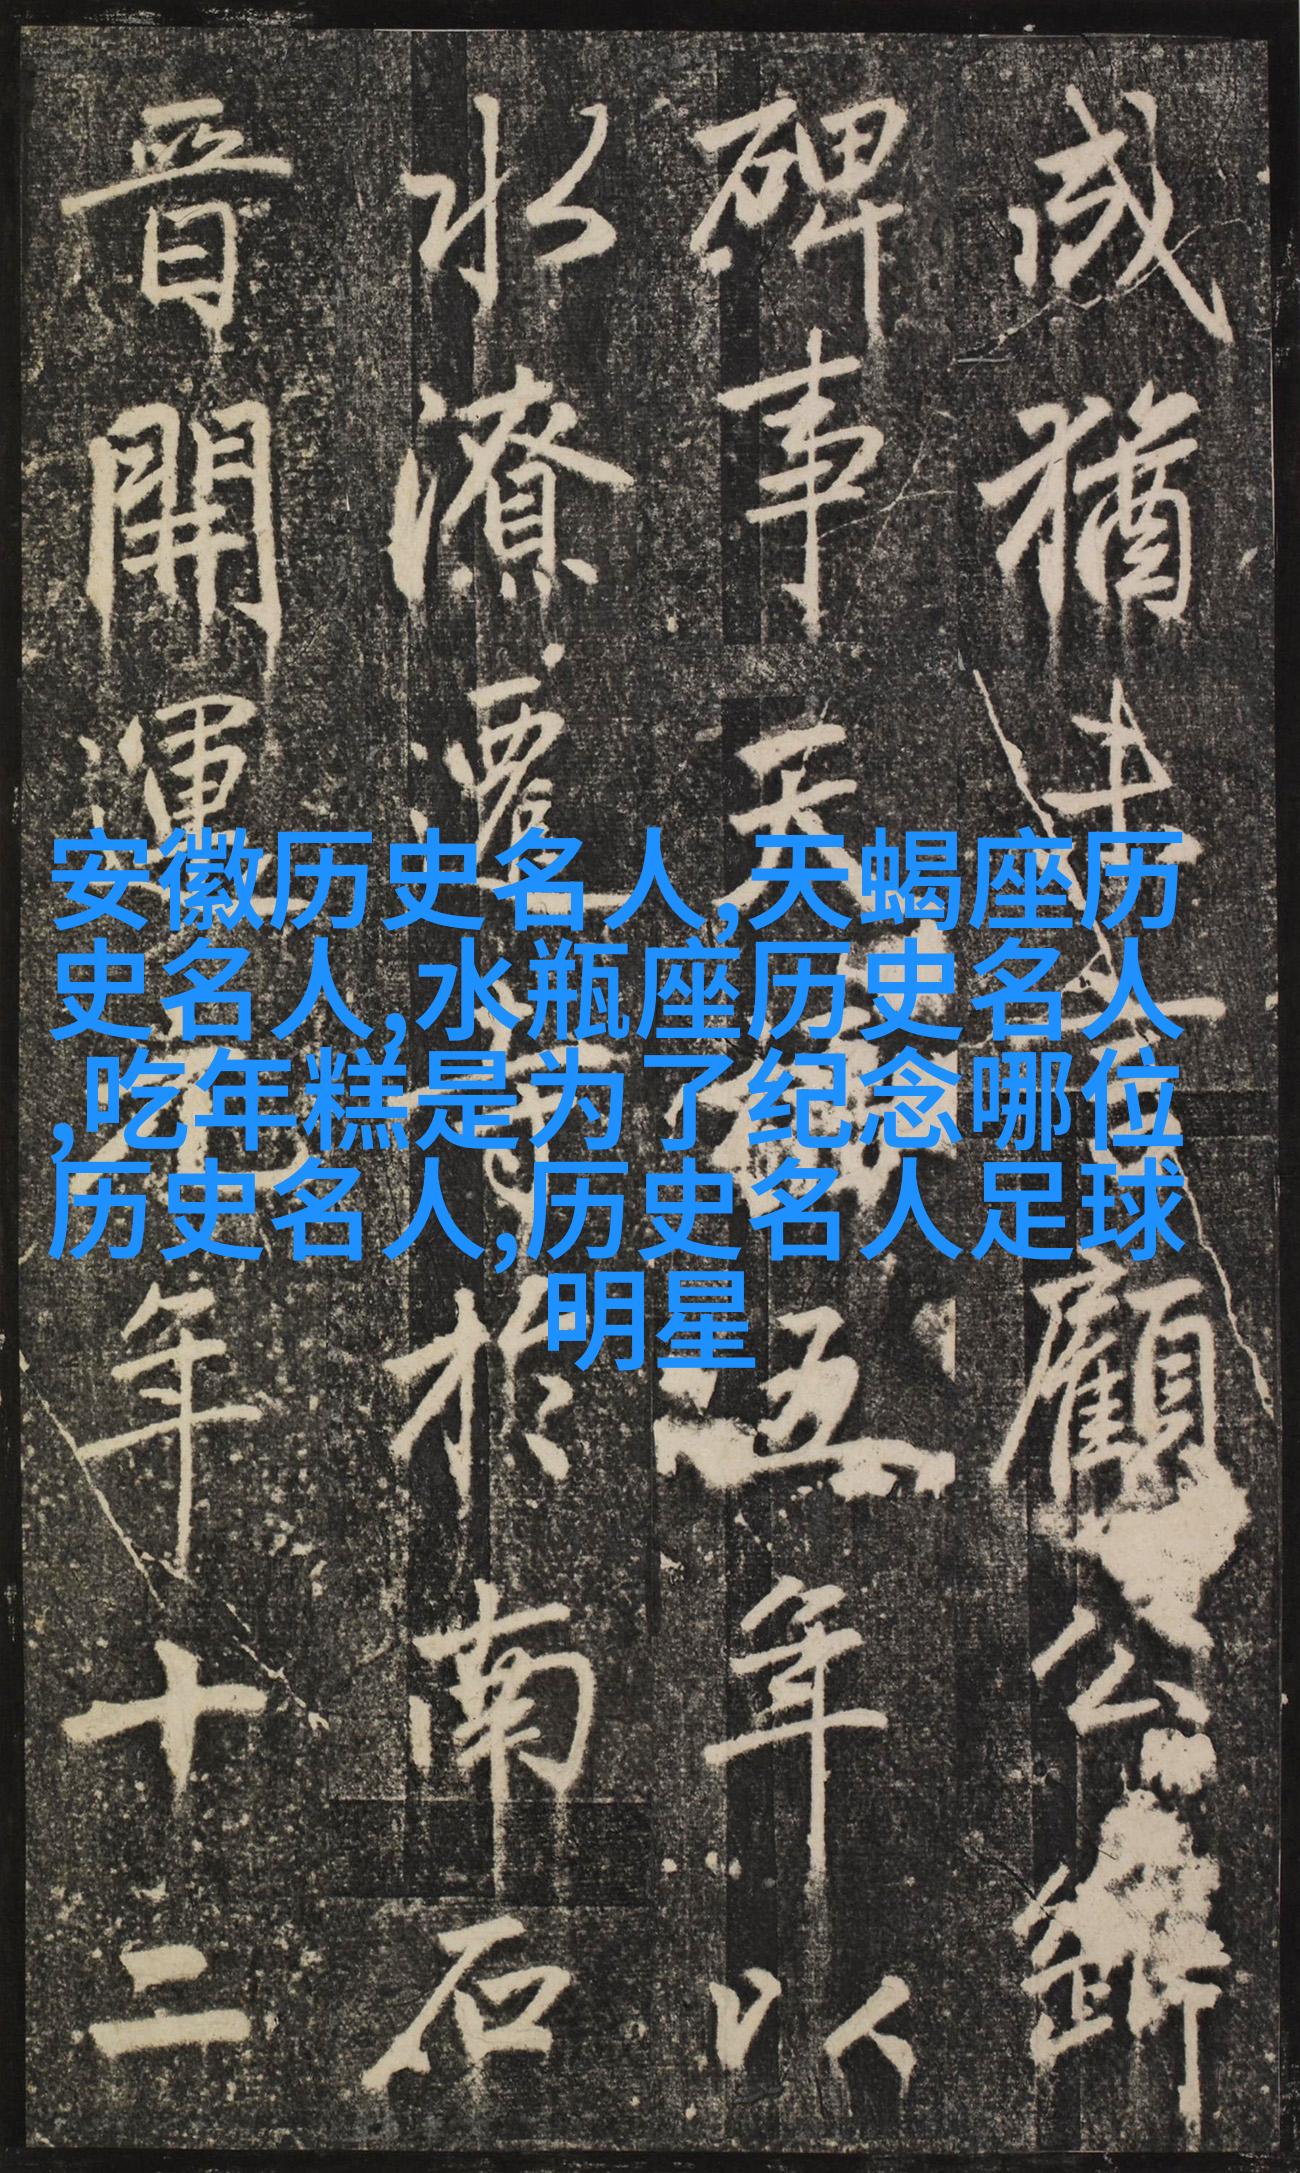 咸猶顧公
碑事天五年以
水潦遷於南石
晉開運年十二
安徽历史名人,天蝎座历
史名人,水瓶座历史名人
,吃年糕是为了纪念哪位
历史名人,历史名人足球
明星